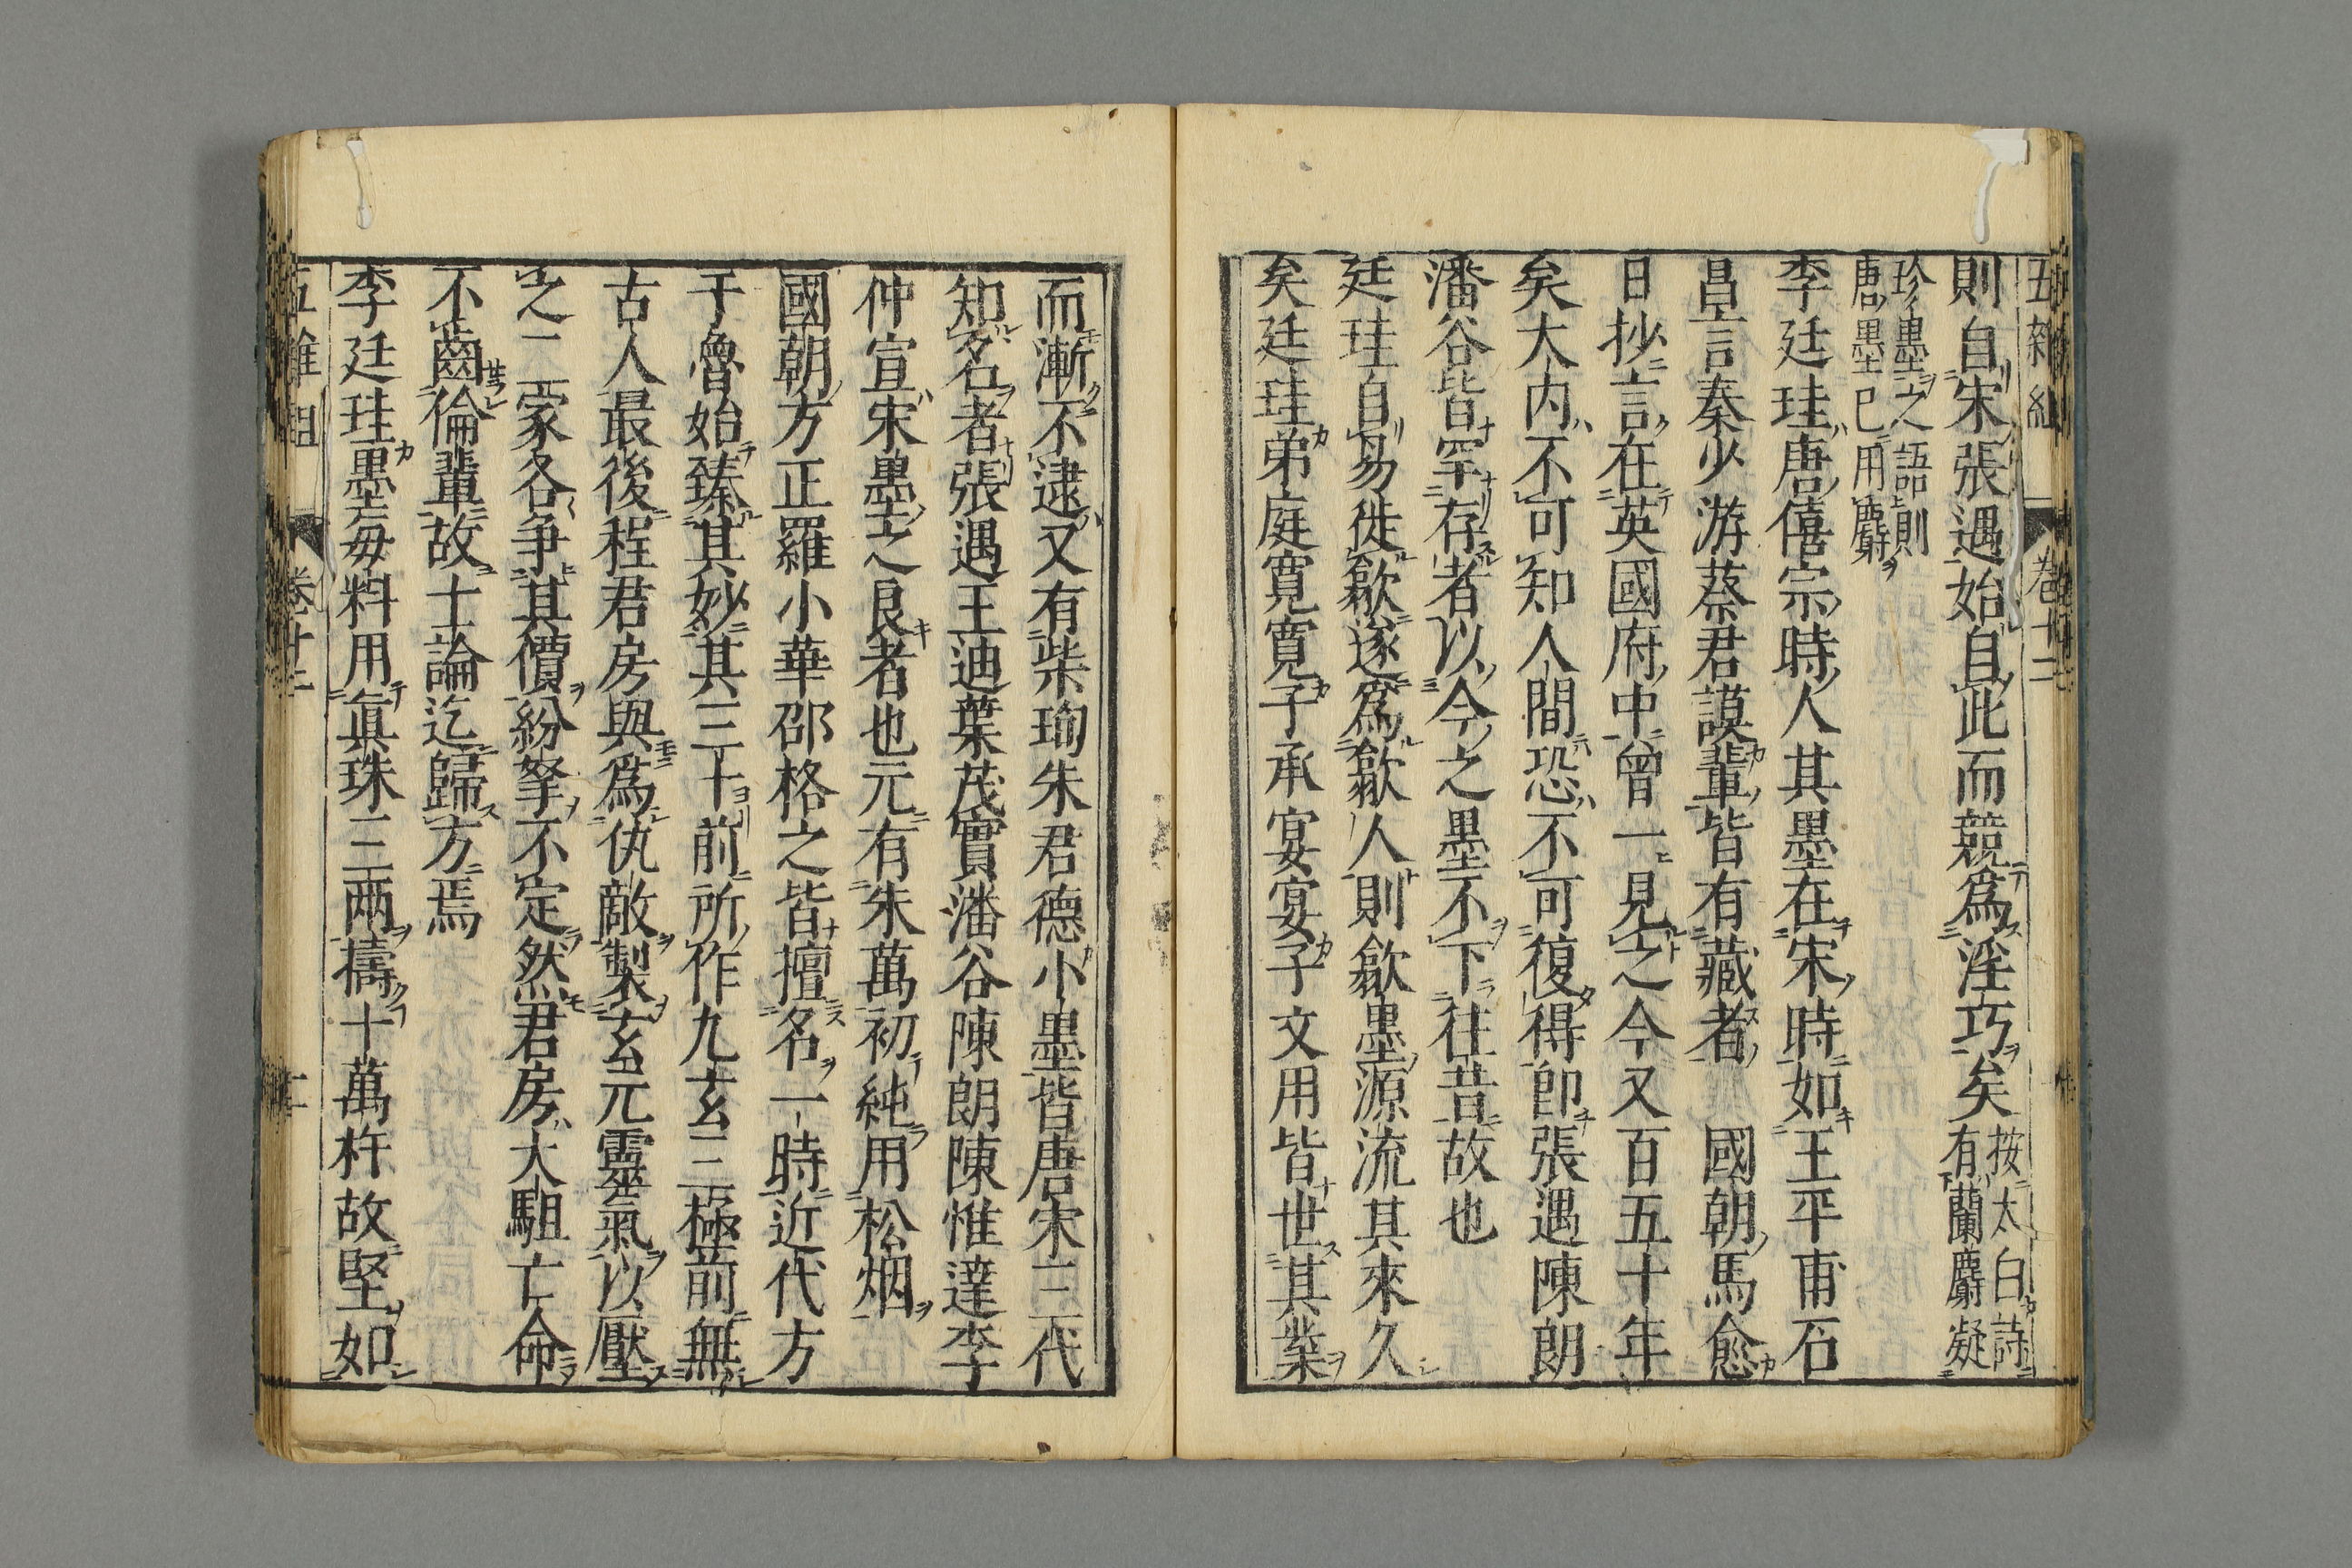 五雜組 卷十二
則自宋張遇始自此而競為淫巧矣
按太白詩
有蘭麝凝
珍墨之語則
唐墨已用麝
李廷珪唐僖宗時人其墨在宋時如王平甫石
昌言秦少游蔡君謨輩皆有藏者 國朝馬愈
日抄言在英國府中曾一見之今又百五十年
矣大内不可知人間恐不可復得即張遇陳朗
潘谷皆罕存者以今之墨不下往昔故也
廷珪自易徙歙遂為歙人則歙墨源流其來久
矣廷珪弟庭寬寬子承宴宴子文用皆世其業
而漸不逮又有柴珣朱君德小墨皆唐宋三代
知名者張遇王迪葉茂實潘谷陳朗陳惟達李
仲宣宋墨之良者也元有朱萬初純用松烟
國朝方正羅小華邵格之皆擅名一時近代方
于魯始臻其妙其三十前所作九玄三極前無
古人最後程君房與為仇敵製玄元靈氣以壓
之二家各争其價紛拏不定然君房大駔亡命
不齒倫輩故士論迄歸方焉
李廷珪墨每料用眞珠三两擣十萬杵故堅如
五雜組 卷十二 十一